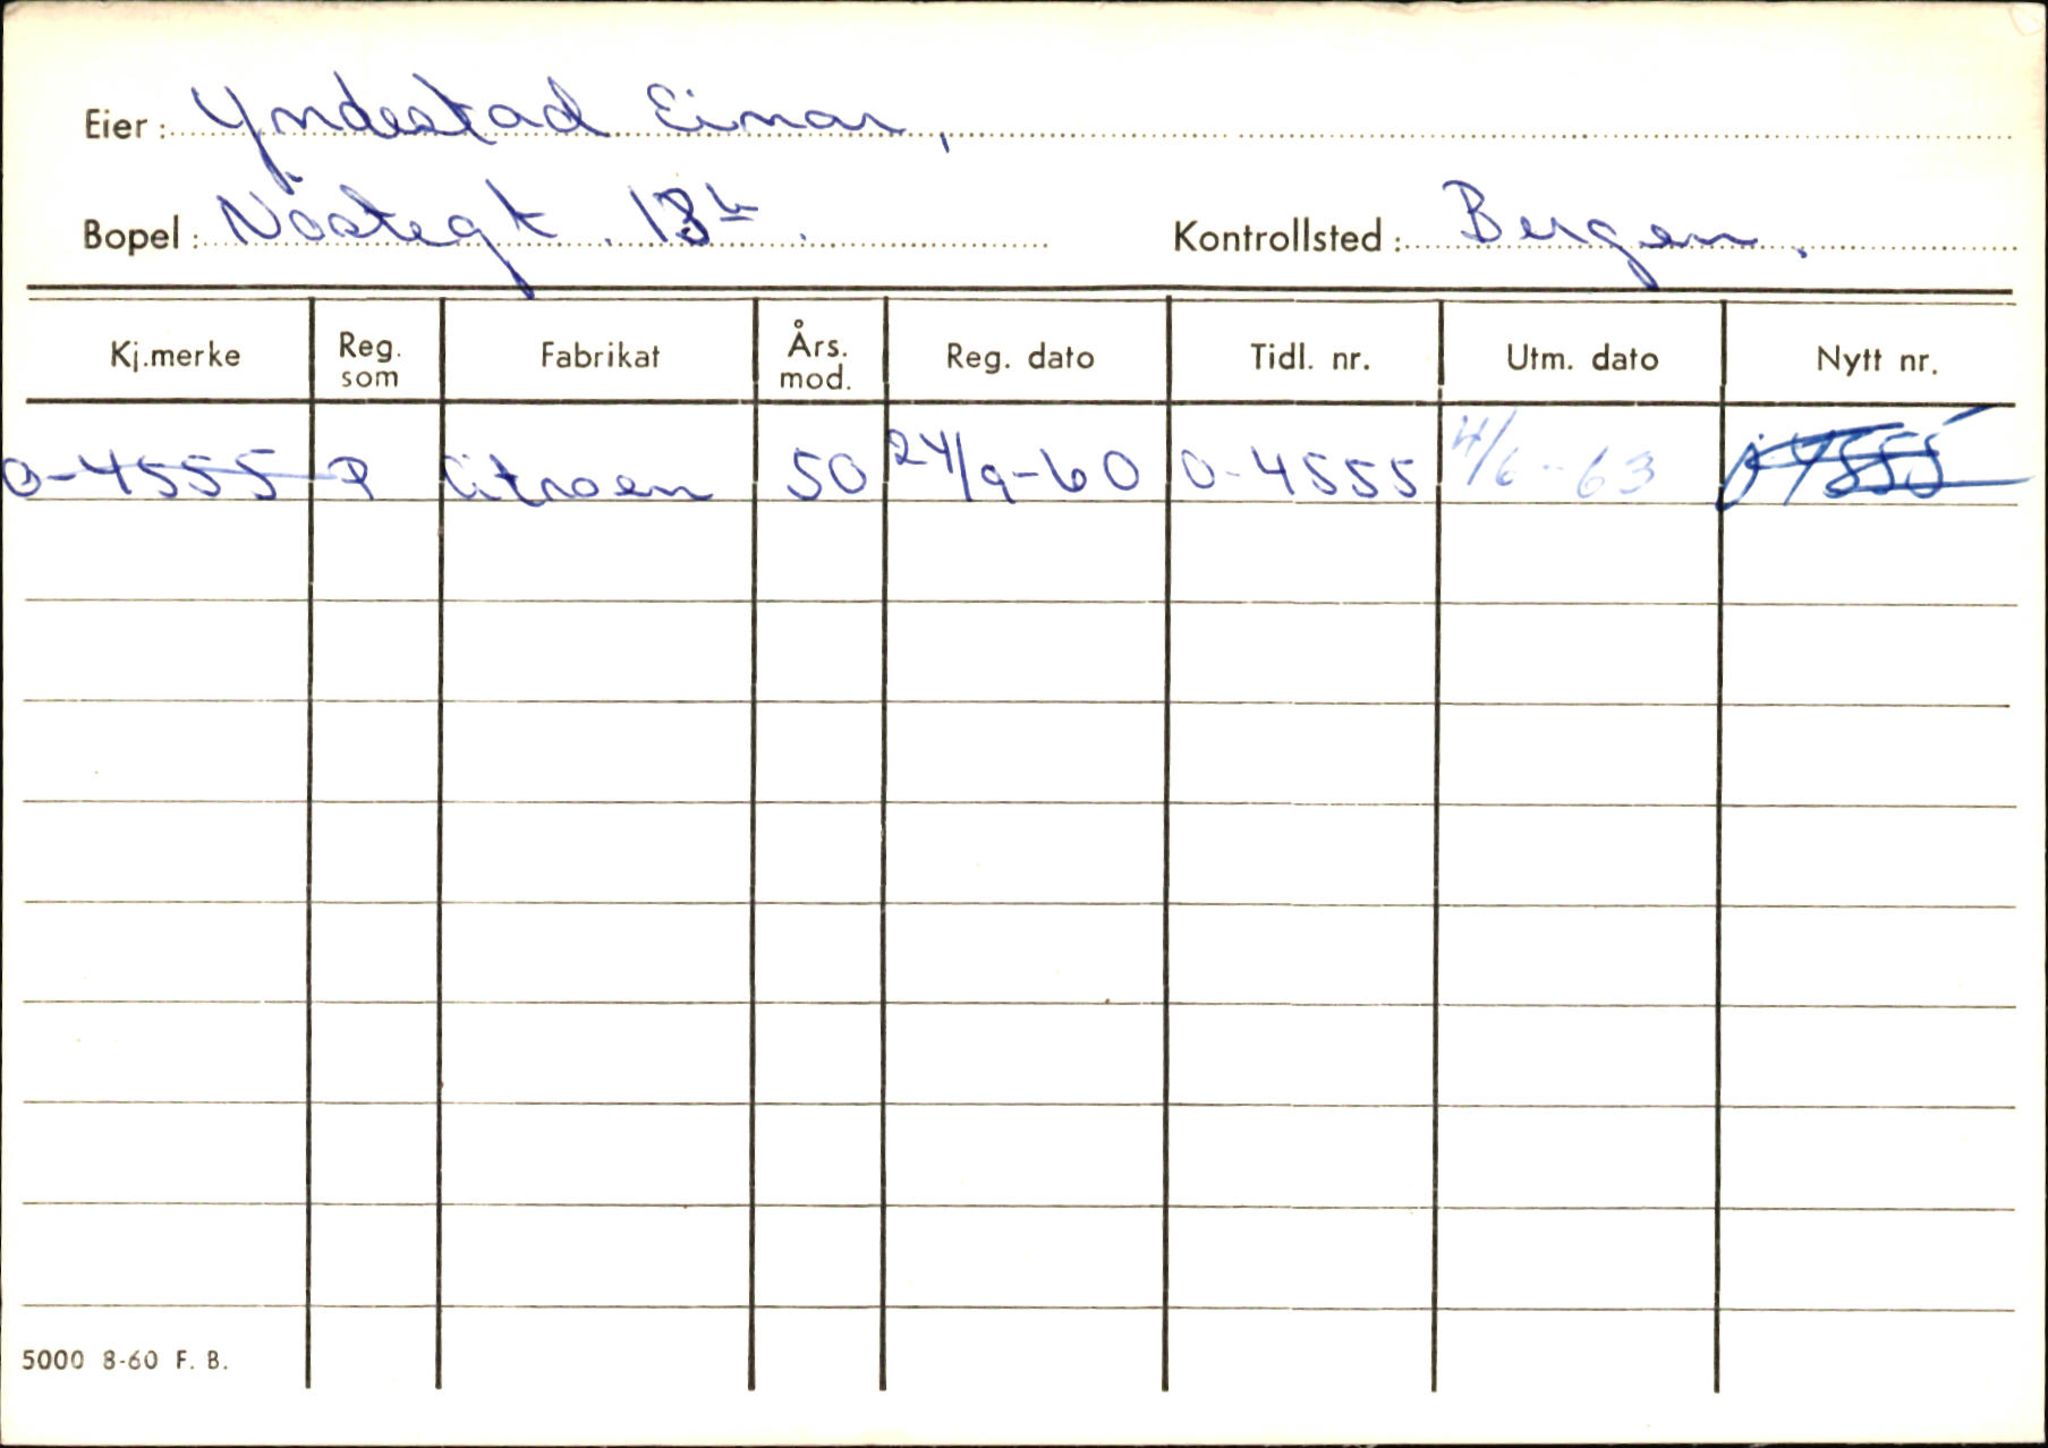 Eier: Yndestad Einar,
Bopel: Nøstegt. 13 b. Kontrollsted: Bergen.
Kj.merke Reg. som Fabrikat Års. mod. Reg. dato Tidl. nr. Utm. dato Nytt nr.
O-4555 P Citroen 50 24/9-60 O-4555 4/6-63
5000 8-60 F. B.